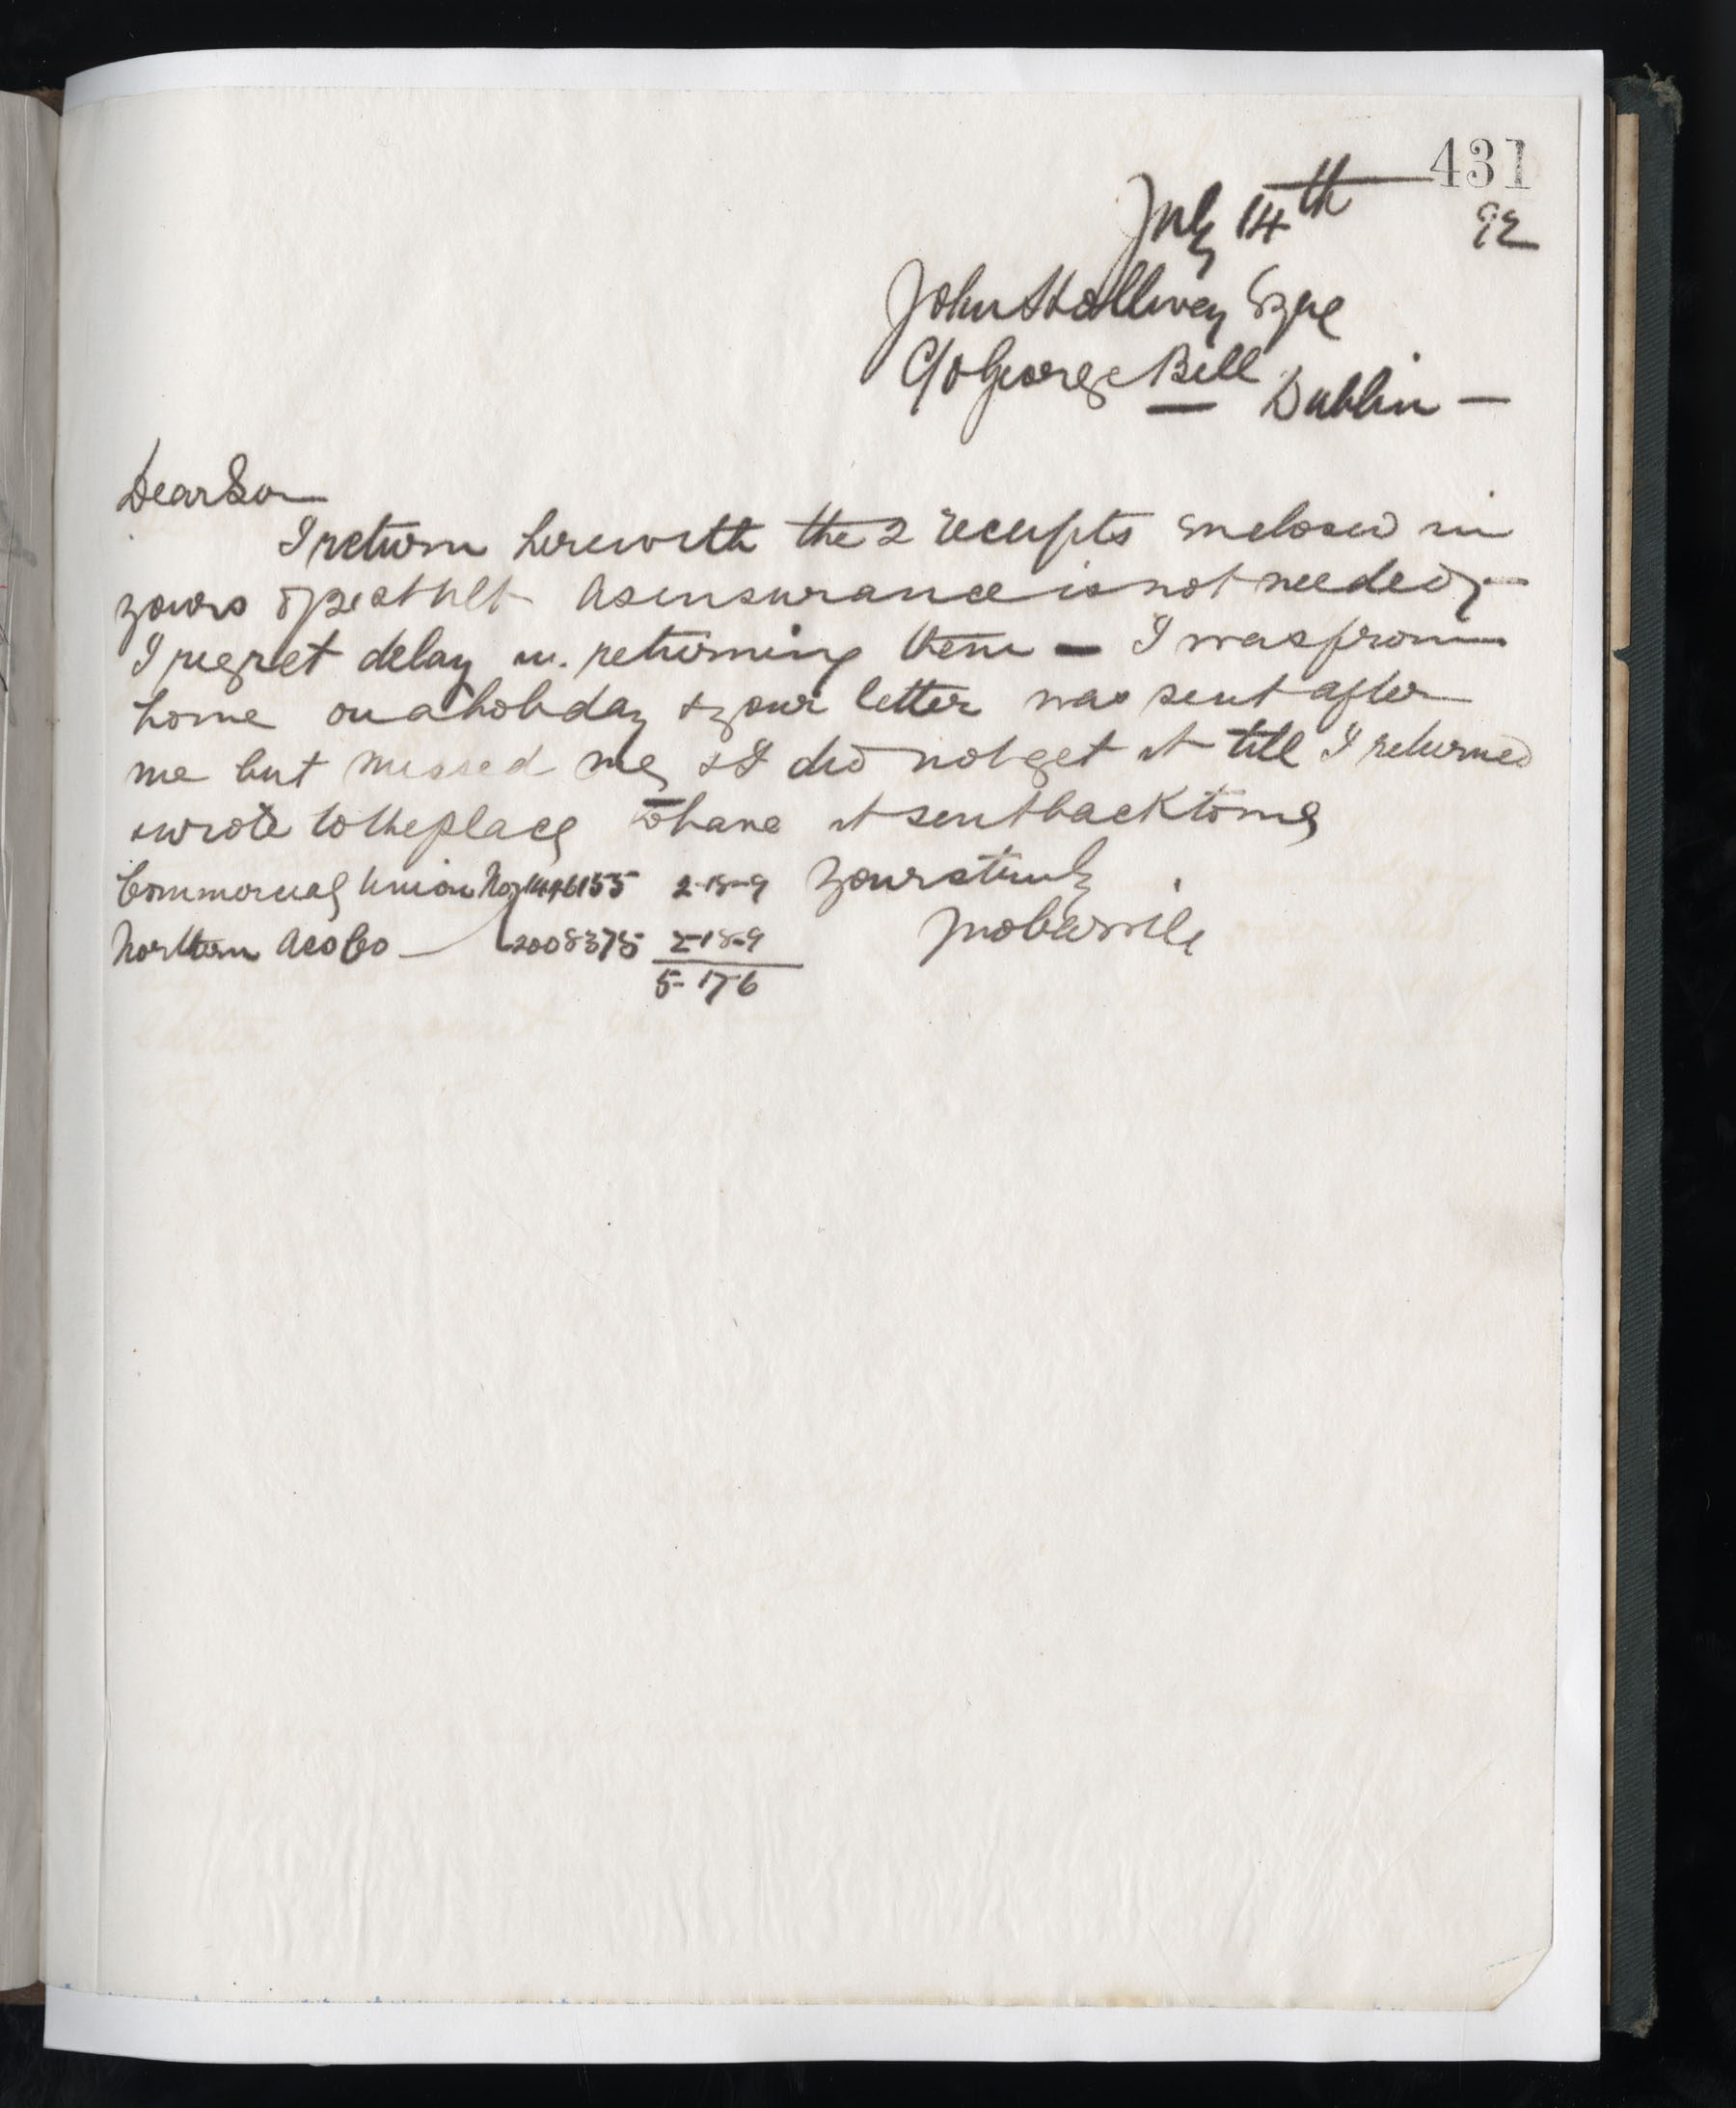 431
July 14th 92
John Halliway Esqre
C/o George Bell Dublin —
Dear Sir
I return herewith the 2 receipts enclosed in
yours of past ult As insurance is not needed, —
I regret delay in returning them — I was from
home on a holiday & your letter was sent after
me but missed me, & I did not get it till I returned
& wrote to the place to have it sent back to me
Commercial Union No 2-18-9 Yours truly
Northern Ass Co — 2008375 2-18-9
5-17-6